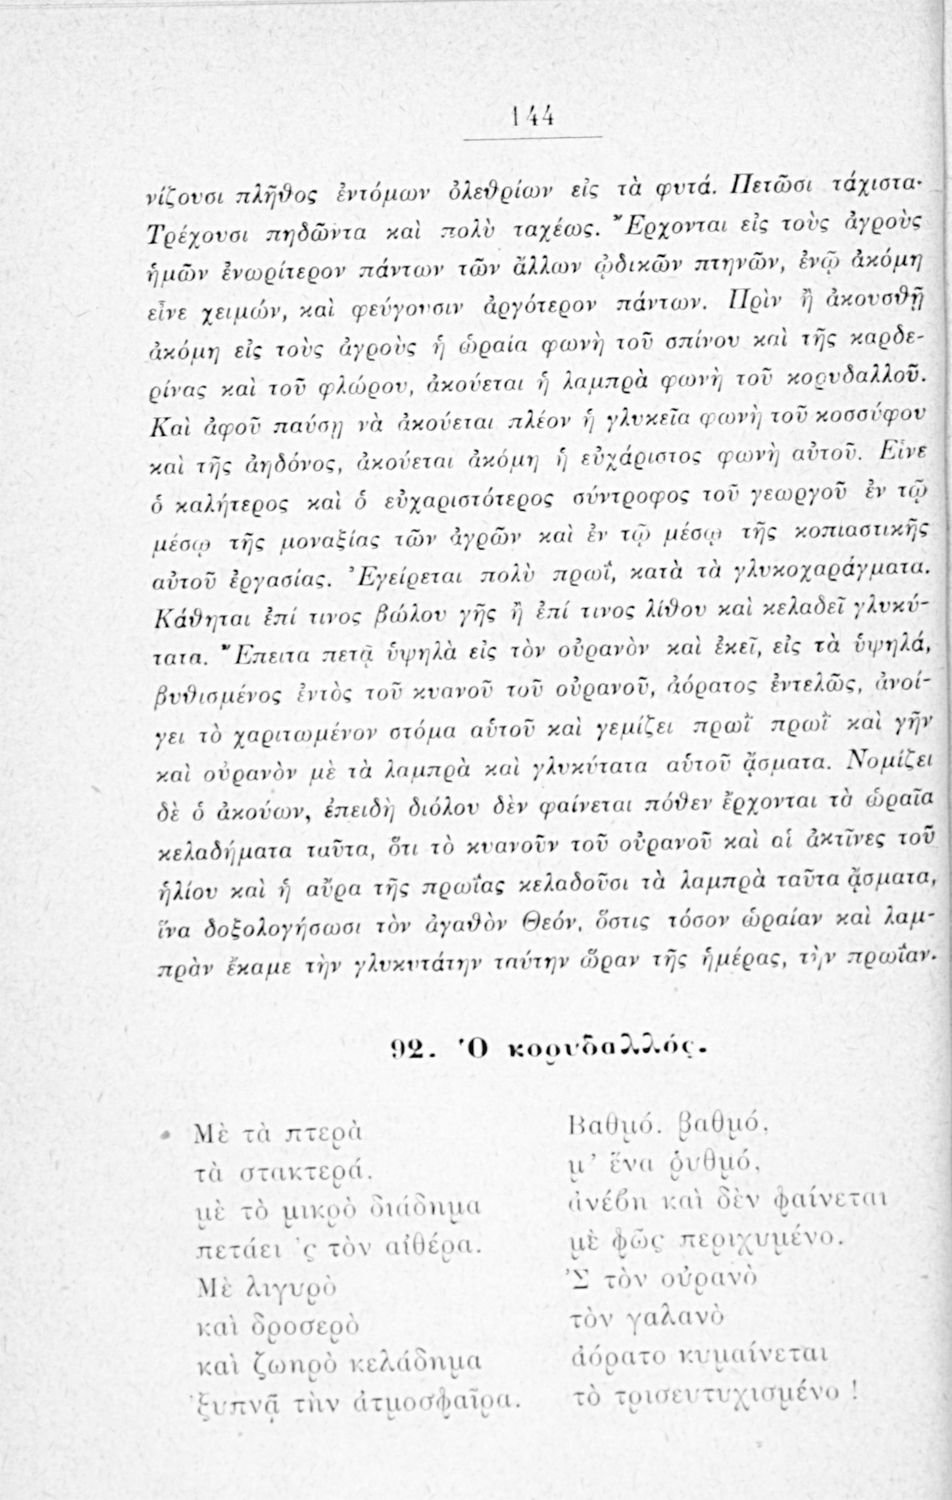 144
νίζουσι πλῆθος ἐντόμων ὀλεθρίων εἰς τὰ φυτά. Πετῶσι τάχιστα·
Τρέχουσι πηδῶντα καὶ πολὺ ταχέως. Ἔρχονται εἰς τοὺς ἀγροὺς
ἡμῶν ἐνωρίτερον πάντων τῶν ἄλλων ᾠδικῶν πτηνῶν, ἐνῷ ἀκόμη
εἶνε χειμών, καὶ φεύγουσιν ἀργότερον πάντων. Πρὶν ἢ ἀκουσθῇ
ἀκόμη εἰς τοὺς ἀγροὺς ἡ ὡραία φωνὴ τοῦ σπίνου καὶ τῆς καρδε-
ρίνας καὶ τοῦ φλώρου, ἀκούεται ἡ λαμπρὰ φωνὴ τοῦ κορυδαλλοῦ.
Καὶ ἀφοῦ παύσῃ νὰ ἀκούεται πλέον ἡ γλυκεῖα φωνὴ τοῦ κοσσύφου
καὶ τῆς ἀηδόνος, ἀκούεται ἀκόμη ἡ εὐχάριστος φωνὴ αὐτοῦ. Εἶνε
ὁ καλήτερος καὶ ὁ εὐχαριστότερος σύντροφος τοῦ γεωργοῦ ἐν τῷ
μέσῳ τῆς μοναξίας τῶν ἀγρῶν καὶ ἐν τῷ μέσῳ τῆς κοπιαστικῆς
αὐτοῦ ἐργασίας. Ἐγείρεται πολὺ πρωΐ, κατὰ τὰ γλυκοχαράγματα.
Κάθηται ἐπί τινος βώλου γῆς ἢ ἐπί τινος λίθου καὶ κελαδεῖ γλυκύ-
τατα. Ἔπειτα πετᾷ ὑψηλὰ εἰς τὸν οὐρανὸν καὶ ἐκεῖ, εἰς τὰ ὑψηλά,
βυθισμένος ἐντὸς τοῦ κυανοῦ τοῦ οὐρανοῦ, ἀόρατος ἐντελῶς, ἀνοί-
γει τὸ χαριτωμένον στόμα αὑτοῦ καὶ γεμίζει πρωῒ πρωῒ καὶ γῆν
καὶ οὐρανὸν μὲ τὰ λαμπρὰ καὶ γλυκύτατα αὑτοῦ ᾄσματα. Νομίζει
δὲ ὁ ἀκούων, ἐπειδὴ διόλου δὲν φαίνεται πόθεν ἔρχονται τὰ ὡραῖα
κελαδήματα ταῦτα, ὅτι τὸ κυανοῦν τοῦ οὐρανοῦ καὶ αἱ ἀκτῖνες τοῦ
ἡλίου καὶ ἡ αὔρα τῆς πρωΐας κελαδοῦσι τὰ λαμπρὰ ταῦτα ᾄσματα,
ἵνα δοξολογήσωσι τὸν ἀγαθὸν Θεόν, ὅστις τόσον ὡραίαν καὶ λαμ-
πρὰν ἔκαμε τὴν γλυκυτάτην ταύτην ὥραν τῆς ἡμέρας, τὴν πρωΐαν.
92. Ὁ κορυδαλλός.
Μὲ τὰ πτερὰ
τὰ στακτερά,
μὲ τὸ μικρὸ διάδημα
πετάει 'ς τὸν αἰθέρα.
Μὲ λιγυρὸ
καὶ δροσερὸ
καὶ ζωηρὸ κελάδημα
'ξυπνᾷ τὴν ἀτμοσφαῖρα.
Βαθμό, βαθμό,
μ' ἕνα ῥυθμό,
ἀνέβη καὶ δὲν φαίνεται
μὲ φῶς περιχυμένο.
'Σ τὸν οὐρανὸ
τὸν γαλανὸ
ἀόρατο κυμαίνεται
τὸ τρισευτυχισμένο !